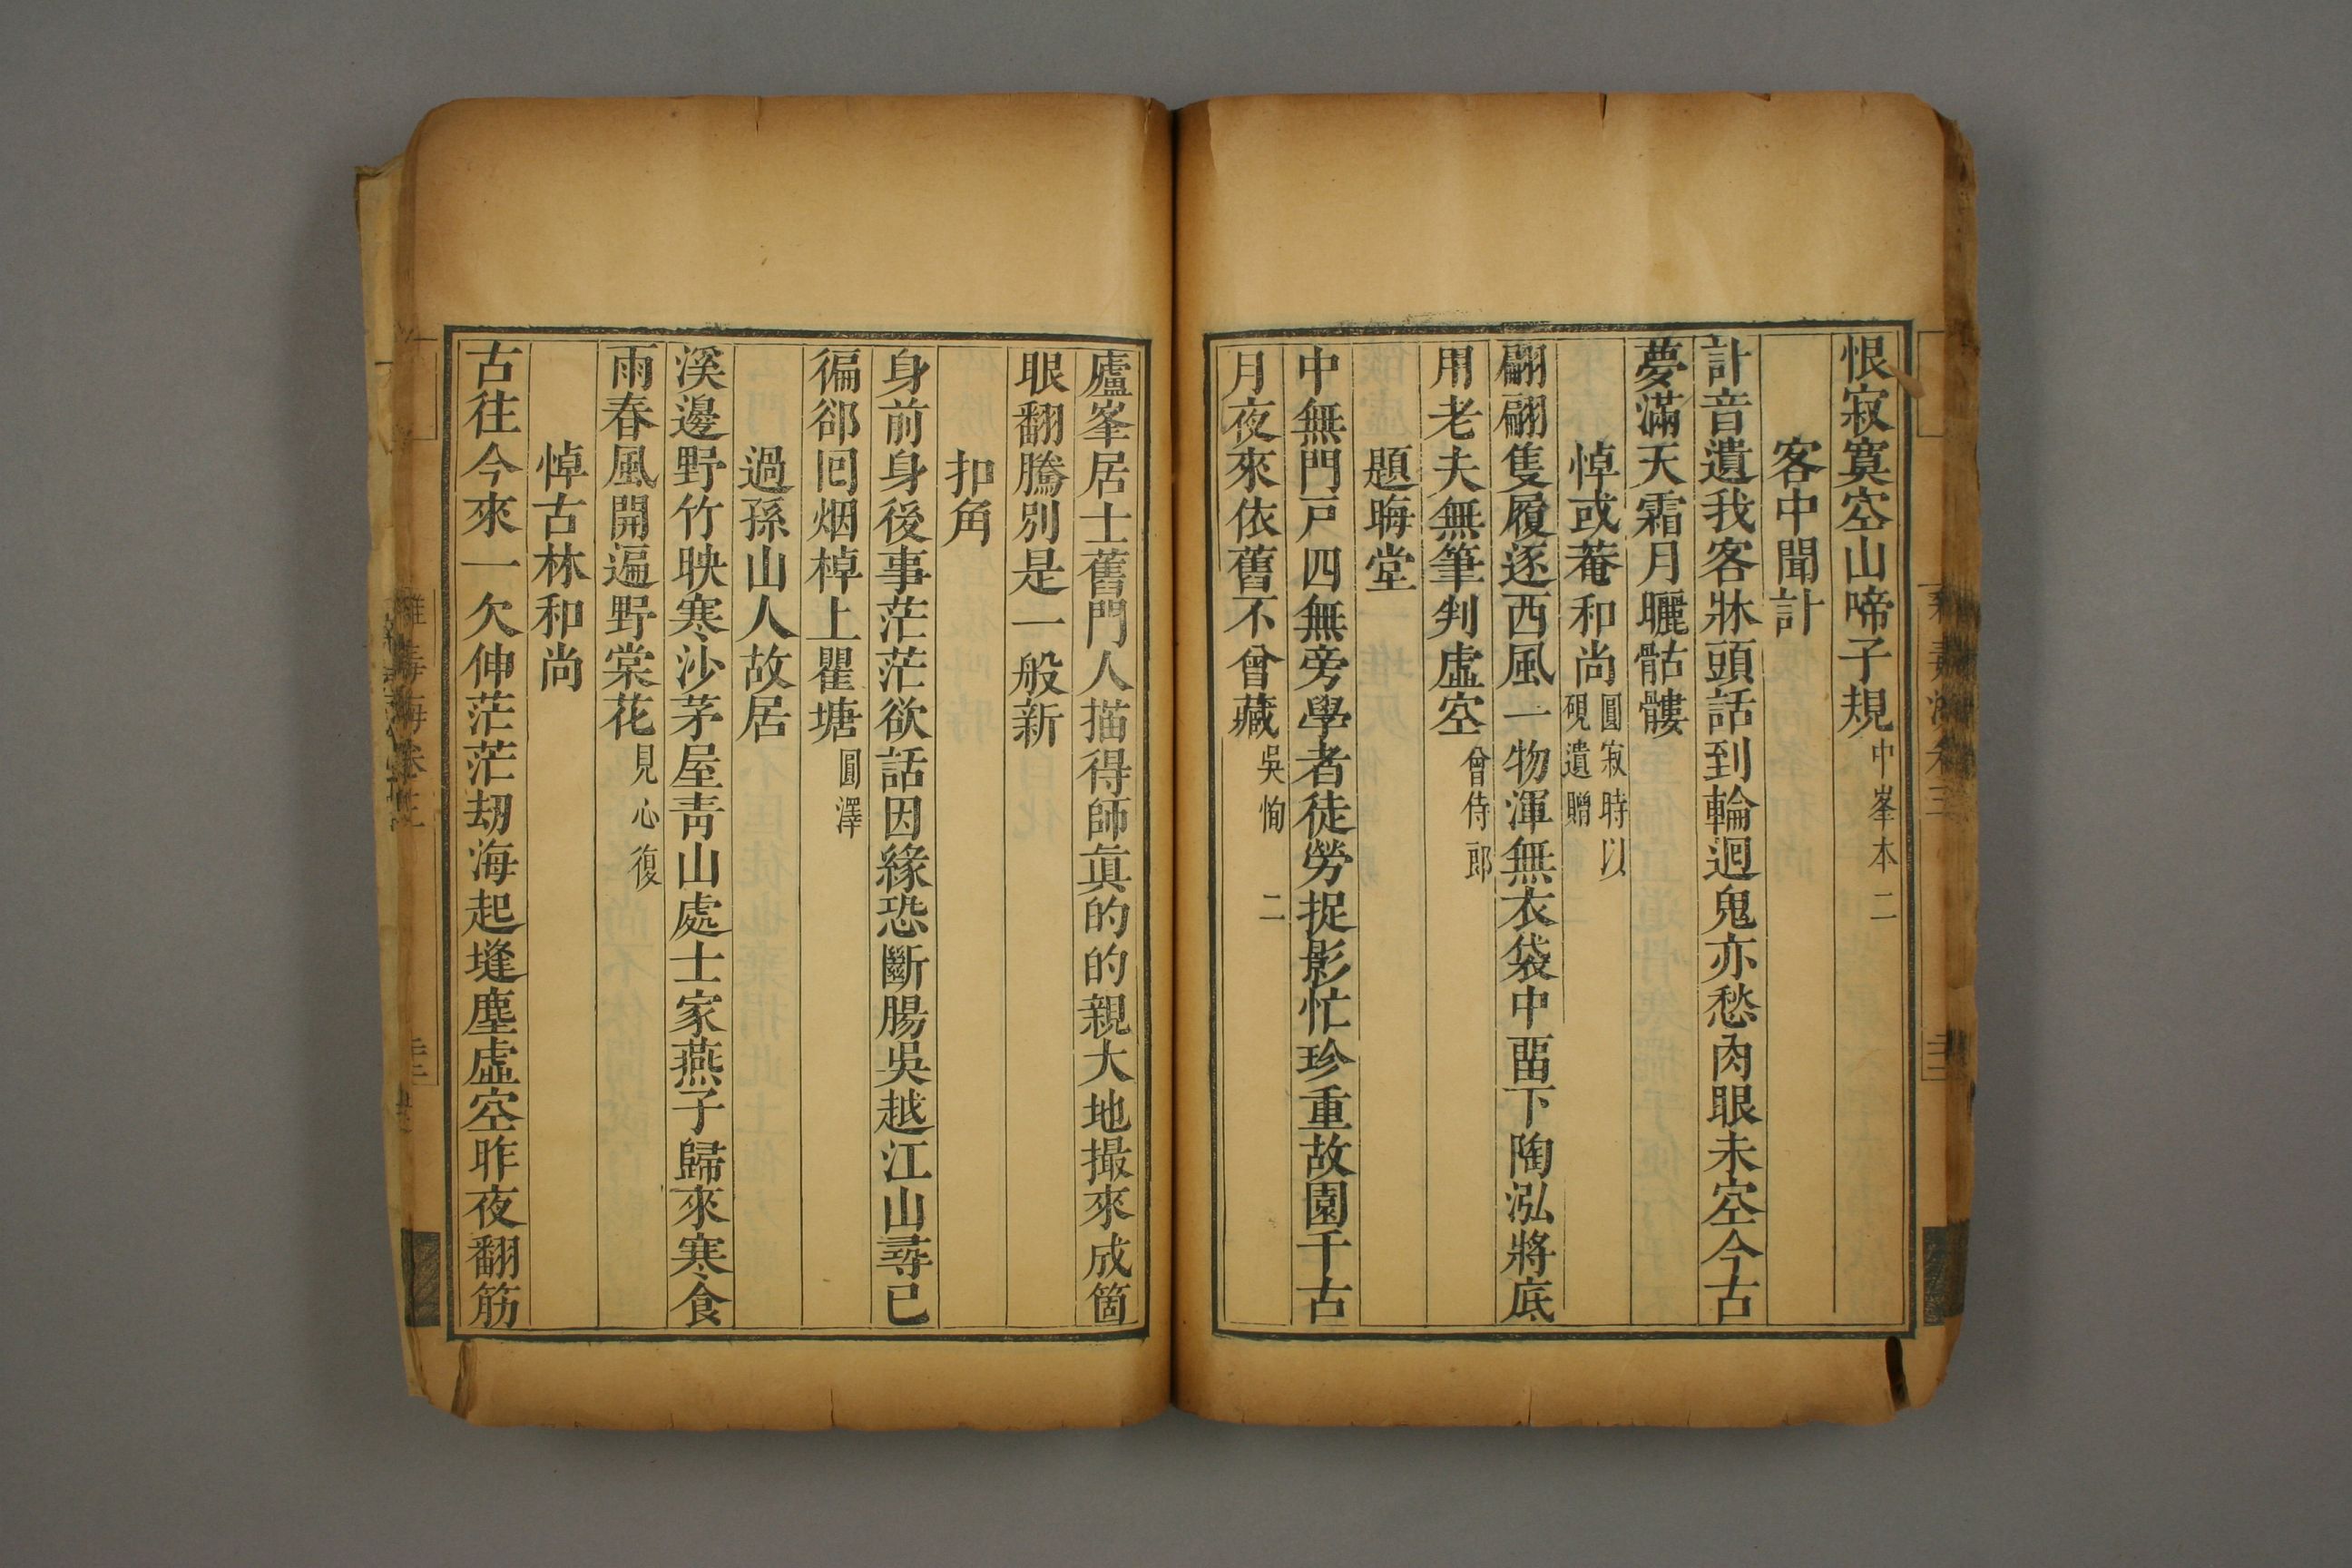 恨寂寞空山啼子規中峯本二
客中聞訃
訃音遺我客牀頭話到輪迴鬼亦愁肉眼未空今古
夢滿天霜月曬骷髏
悼或菴和尚圓寂時以硯遺贈
翩翩隻履逐西風一物渾無衣袋中畱下陶泓將底
用老夫無筆判虛空曾侍郎
題晦堂
中無門戸四無旁學者徒勞捉影忙珍重故園千古
月夜來依舊不曾藏吳恂二
廬峯居士舊門人描得師眞的的親大地撮來成箇
眼翻騰別是一般新
扣角
身前身後事茫茫欲話因緣恐斷腸吳越江山尋已
徧郤囘烟棹上瞿塘圓澤
過孫山人故居
溪邊野竹映寒沙茅屋靑山處士家燕子歸來寒食
雨春風開遍野棠花見心復
悼古林和尚
古往今來一欠伸茫茫劫海起塵虛空昨夜翻筋